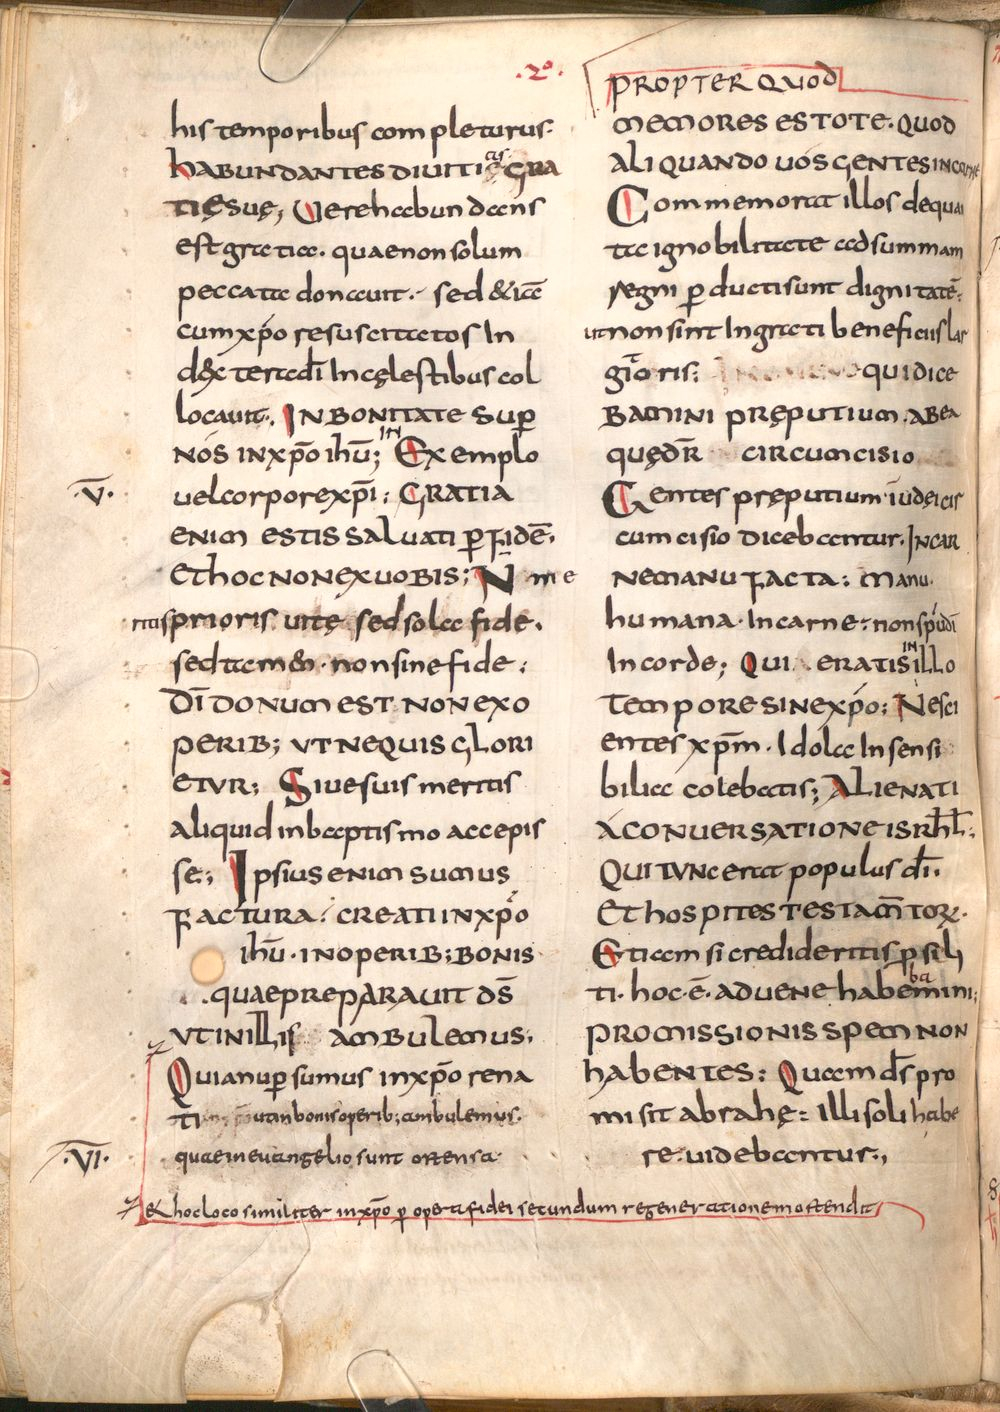 .2°.
his temporibus completurus.
habundantes diuitias gra
tięsuę; Uere habundans
est gratia. quae non solum
peccata donauit. sed & iā
cum xp̄o resuscitatos In
dextera dī In cęlestibus col
locauit. In bonitate sup
nós in xp̄o ihū; IN Exemplo
·V̄·
uel corpore xp̄i: gratia
enim estis saluati p fidē.
et hoc non ex uobis; N me
ritis prioris uitę sed sola fide.
sed tam& non sine fide:
Dī donum est non exo
perib; ut nequis glori
etur; Siue suis meritis
aliquid in baptismo accepis
se; Ipsius enim sumus
factura: creati in xp̄o
ihū. in operib; bonis
quae preparauit ds̄
ut in illis ambulemus.
Quia nup sumus in xp̄o rena
ti ut in bonis operib; ambulemus.
·VI·
quae in euangelio sunt ostensa
propter quod
memores estote. quod
aliquando uós gentes in carne
Commemorat illos de qua
ta ignobilitate ad summam
regni p ducti sunt dignitatē:
ut non sint Ingrati beneficiis lar
gitoris; qui dice
bamini pręputium. ab ea
quędr̄ circumcisio
Gentes pręputium iudei cir
cumcisio dicebantur. In car
ne manu facta: manu
humana. In carne: non spū dī
In corde; Qui eratis IN illo
tempore sine xp̄o; Nesci
entes xp̄m. Idola Insensi
bilia colebatis; Alienati
á conuersatione isrhl̄;
qui tunc erat populus dī.
et hospites testam̄torꝝ.
Etiam si credideritis p seli
ti. hoc. ē. aduene habe ba mini;
promissionis spem non
habentes: Quam ds̄ pro
misit abrahę: Illi soli habe
re uidebantur.,
& hoc loco similiter in xp̄o p opera fidei secundum regenerationem ostendit